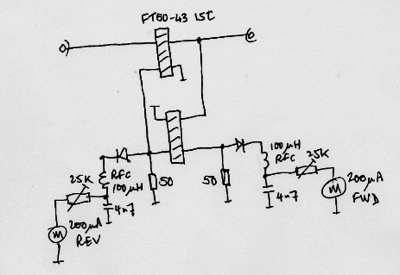 FT50-43 15T
RFC
100µH
25K
50
50
100µH
RFC
25K
4n7
4n7
200µA
REV
200µA
FWD
M
M